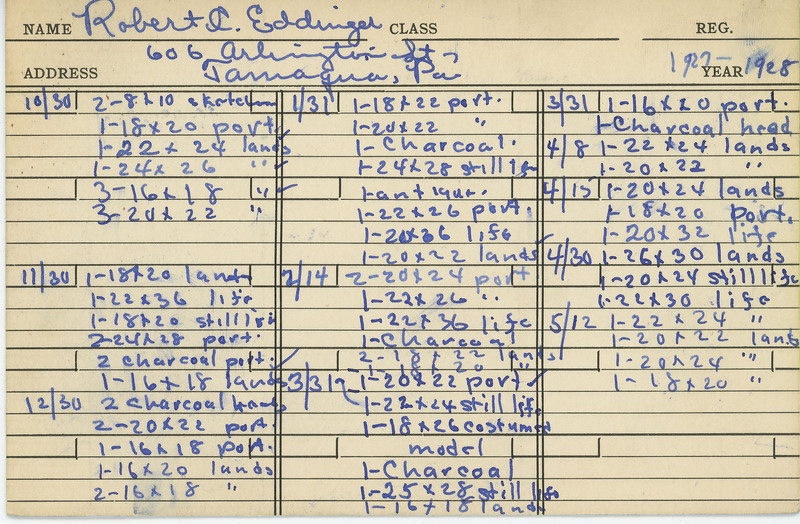 NAME Robert C. Eddinger CLASS REG.
606 Arlington St.
ADDRESS Tamaqua, Pa YEAR 1927-1928
10/30 2-8x10 sketches
1-18x20 port
1-22x24 lands
1-24x26 "
3-16x18 "
3-20x22 "
11/30 1-18x20 lands
1-22x36 life
1-18x20 still life
2-24x28 port.
2 charcoal port.
1-16x18 lands
12/30 2 charcoal heads
2-20x22 port.
1-16x18 port.
1-16x20 lands
2-16x18 "
1/31 1-18x22 port.
1-20x22 "
1-Charcoal.
1-24x28 still life
1-antique.
1-22x26 port.
1-20x36 life
1-20x22 lands
2/14 2-20x24 port
1-22x26 "
1-22x36 life
1-Charcoal
2-18x22 lands
1-18x20 "
3/31 1-20x22 port
1-22x24 still life
1-18x26 costumed
model
1-Charcoal
1-25x28 still life
1-16x18 lands
3/31 1-16x20 port.
1-Charcoal head
4/8 1-22x24 lands
1-20x22 "
4/15 1-20x24 lands
1-18x20 port.
1-20x32 life
4/30 1-26x30 lands
1-20x24 still life
1-22x30 life
5/12 1-22x24 "
1-20x22 lands
1-20x24 "
1-18x20 "